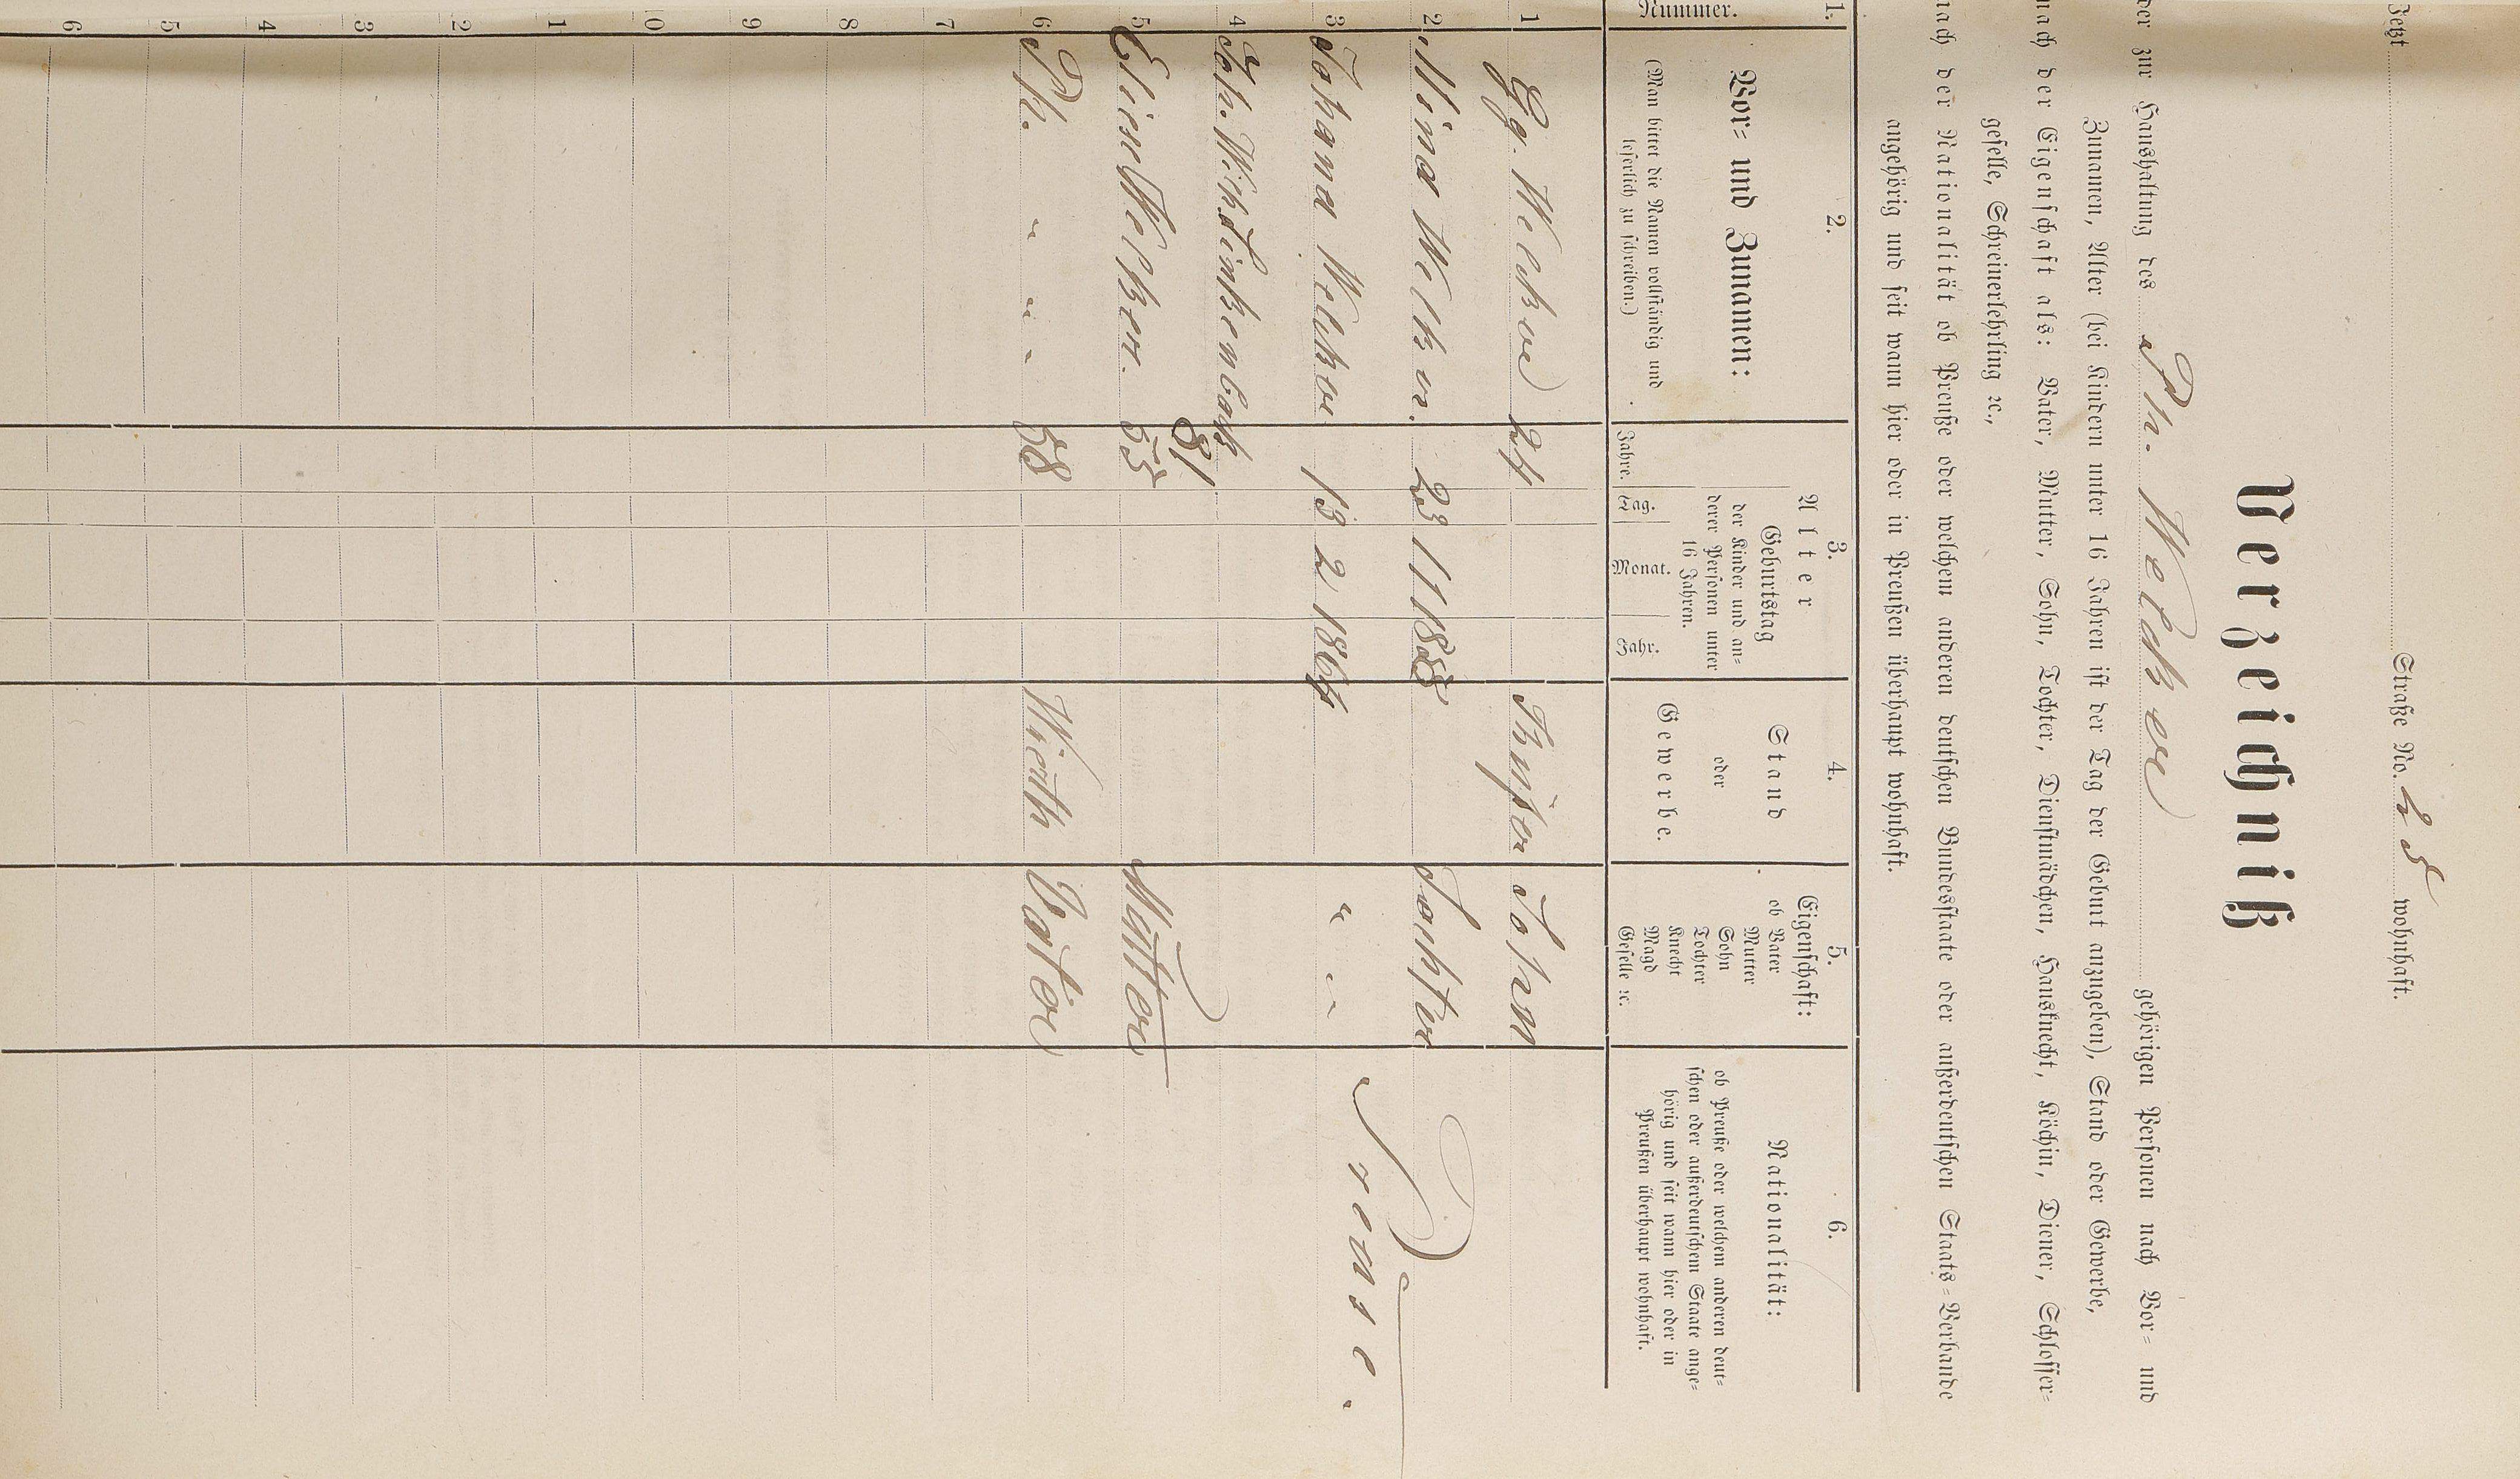 Jetzt Straße No. 25 wohnhaft.
Verzeichniß
der zur Haushaltung des Ph. Welker gehörigen Personen nach Vor= und
Zunamen, Alter (bei Kindern unter 16 Jahren ist der Tag der Geburt anzugeben), Stand oder Gewerbe,
nach der Eigenschaft als: Vater, Mutter, Sohn, Tochter, Dienstmädchen, Hausknecht, Köchin, Diener, Schlosser=
geselle, Schreinerlehrling ꝛc.,
nach der Nationalität ob Preuße oder welchen anderen deutschen Bundesstaate oder außerdeutschen Staats=Verbande
angehörig und seit wann hier oder in Preußen überhaupt wohnhaft.
1. 2. 3. 4. 5. 6.
Nummer.
Vor= und Zunamen:
(Man bittet die Namen vollständig und
leserlich zu schreiben.)
Alter
Geburtstag
der Kinder und an=
derer Personen unter
16 Jahren.
Jahre. Tag. Monat. Jahr.
Stand
oder
Gewerbe.
Eigenschaft:
ob Vater
Mutter
Sohn
Tochter
Knecht
Magd
Geselle ꝛc.
Nationalität:
ob Preuße oder welchem anderen deut=
schen oder außerdeutschem Staate ange=
hörig und seit wann hier oder in
Preußen überhaupt wohnhaft.
1 Gg. Welker 24 Küfer Sohn
2 Mina Welker. 23 1 Tochter
3 Johana Welker 13 2 1864 " "
4 Joh. Wilh. 81
5 Welker. 53 Mutter
6 Ph. " " " 58 Wirth Vater
Preuse.
7
8
9
0
1
2
3
4
5
6